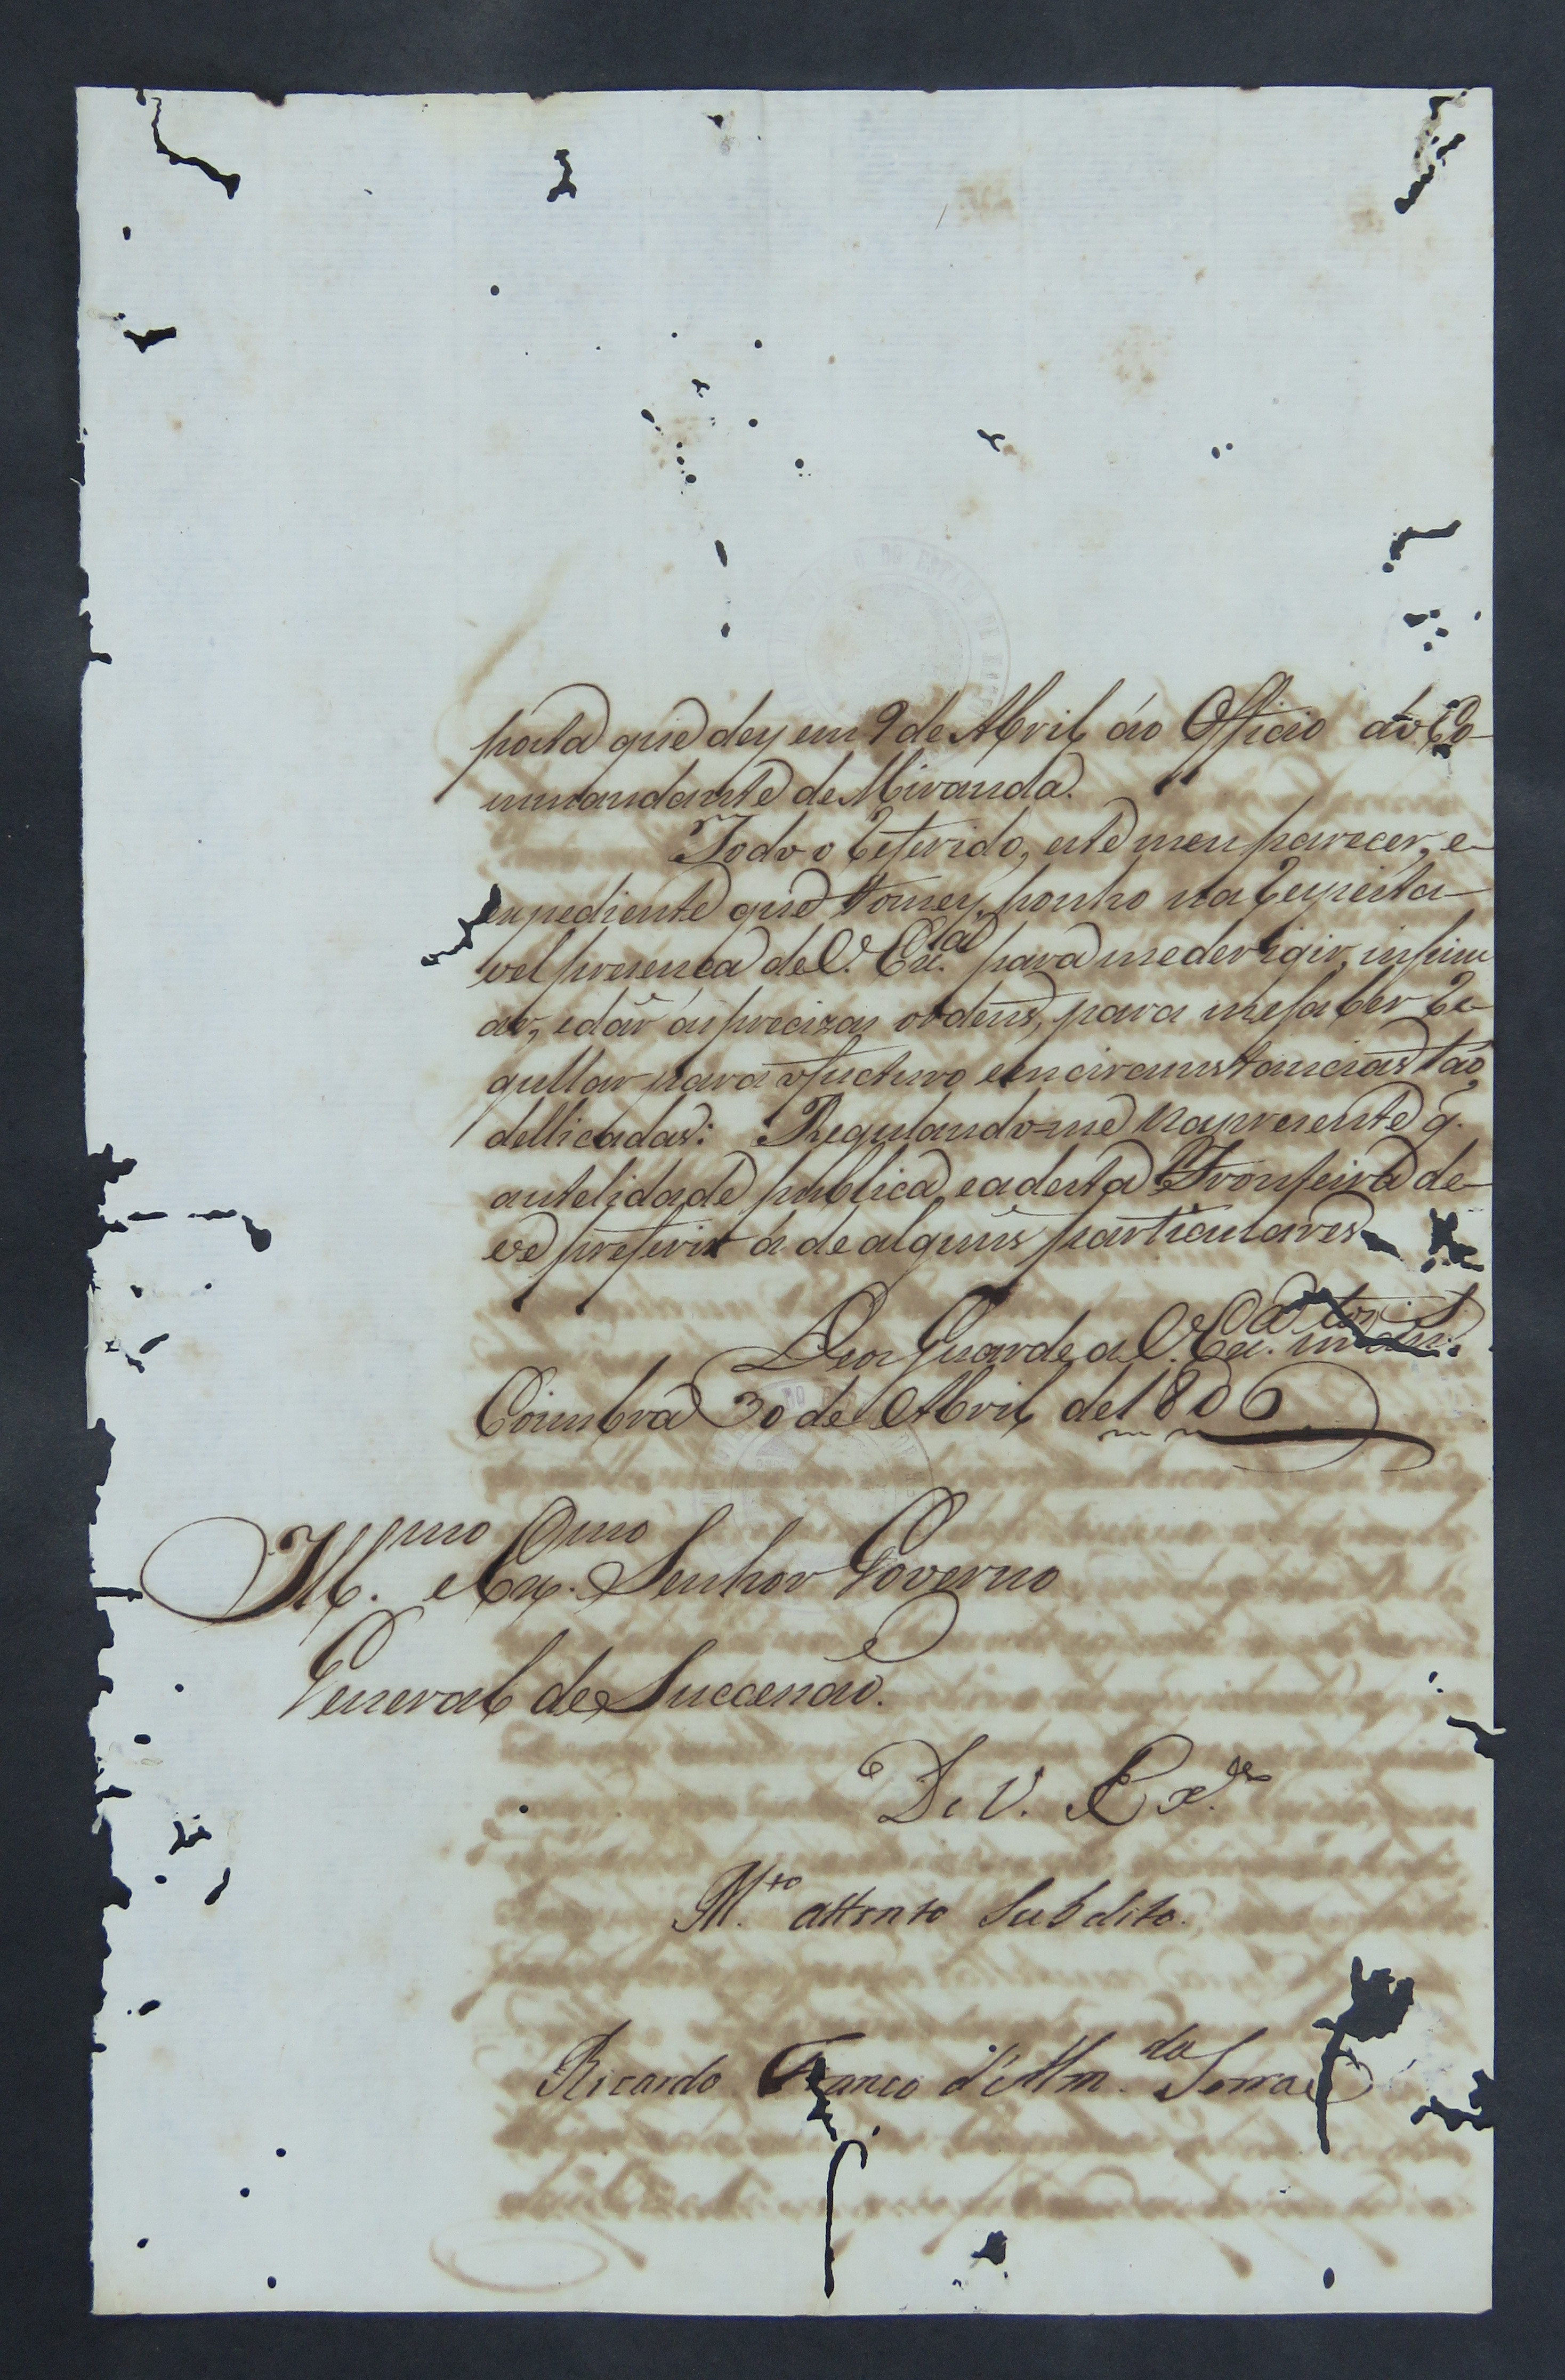 posta que dey em 9 de Abril ao Officio do Co-
mmandante de Miranda.
Todo o referido, este meu parecer, e
expediente que tomey, ponho na respeita-
vel presença de V. Ex.ª para me derigir, insinu
ar, e dar as precizas ordens, para me saber re-
gullar para o fucturo em circunstancias tão
dellicadas: Regulando-me na presente q.
a utelidade publica, e a desta Fronteira de-
ve preferir á de alguns particulares.
Deos Guarde a V. Ex.ª m.tos an.s
Coimbra 30 de Abril de 1806
Ill.mo e Ex.mo Senhor Governo
General de Successaõ.
De V. Ex.as
M.to attento Subdito.
Ricardo Franco d'Alm.da Serra